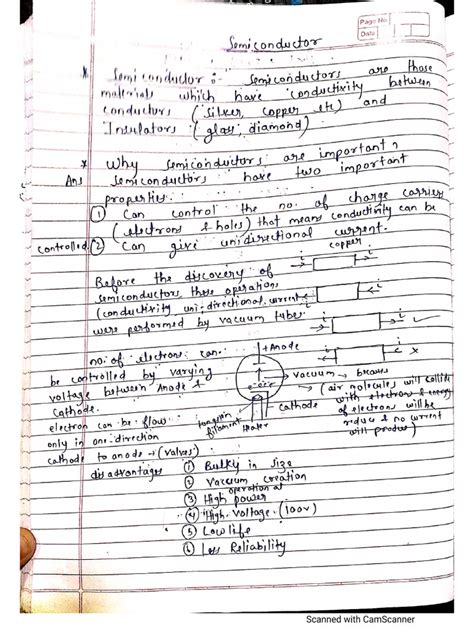 Page No.
Date
Semiconductor
* Semiconductor :- Semiconductors are those
materials which have conductivity between
conductors (Silver, copper etc) and
Insulators (glass, diamond)
* Why semiconductors are important ?
Ans Semiconductors have two important
properties.
(1) Can control the no. of charge carriers
(electrons & holes) that means conductivity can be
controlled.
(2) Can give unidirectional current.
copper
Before the discovery of
semiconductors these operations
(conductivity uni-directional current)
were performed by vacuum tube.
i
i
i
i
i
i
x
no. of electrons can
be controlled by varying
voltage between Anode &
cathode.
electron can be flow
only in one direction
cathode to anode → (valves)
+Anode
vacuum → because
(air molecules will collide
with electrons & energy
of electrons will be
reduce & no current
will produce)
cathode
tungsten
filament
Heater
disadvantages
(1) Bulky in size
(2) Vacuum creation
(3) High power
operation at
(4) High voltage (100v)
(5) Low life
(6) Less Reliability
Scanned with CamScanner